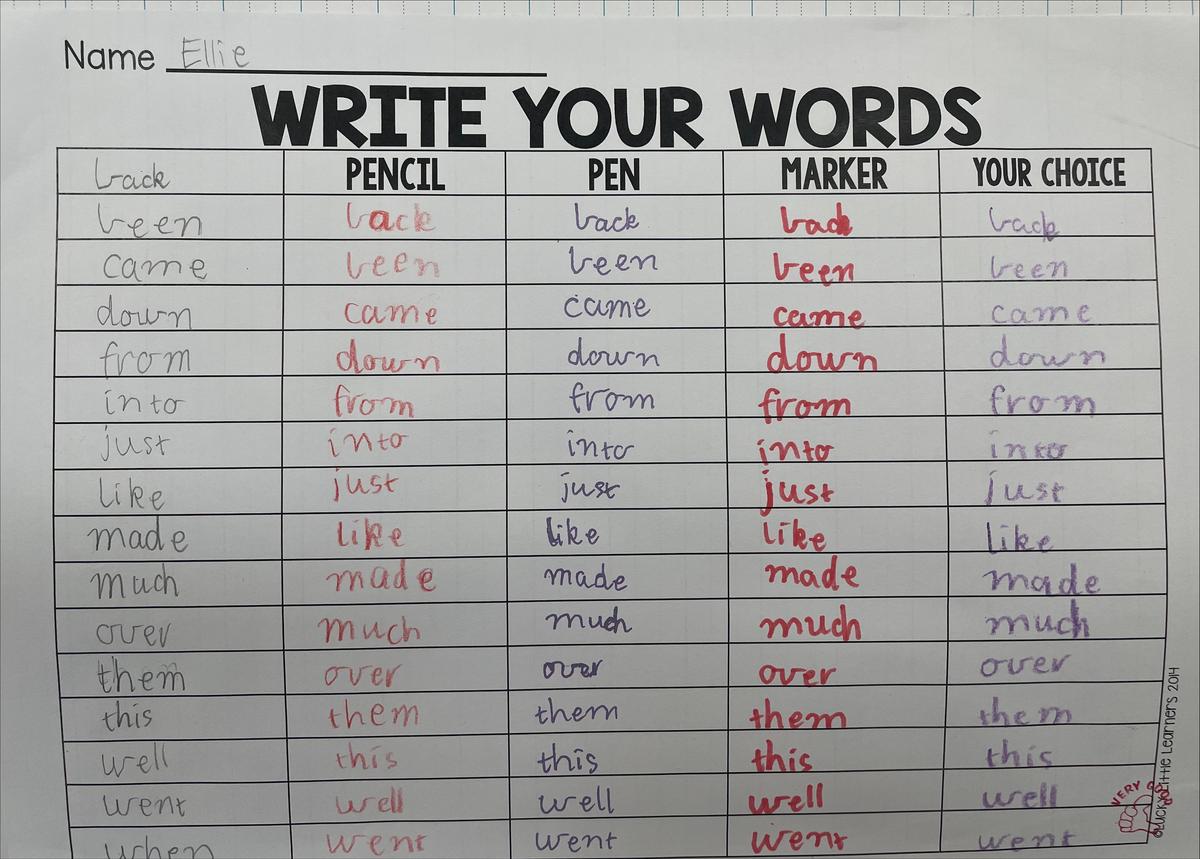 Name Ellie
WRITE YOUR WORDS
back PENCIL PEN MARKER YOUR CHOICE
been back back back back
came been been been been
down came came came came
from down down down down
into from from from from
just into into into into
like just just just just
made like like like like
much made made made made
over much much much much
them over over over over
this them them them them
well this this this this
went well well well well
when went went went went
©Lucky Little Learners 2014
VERY